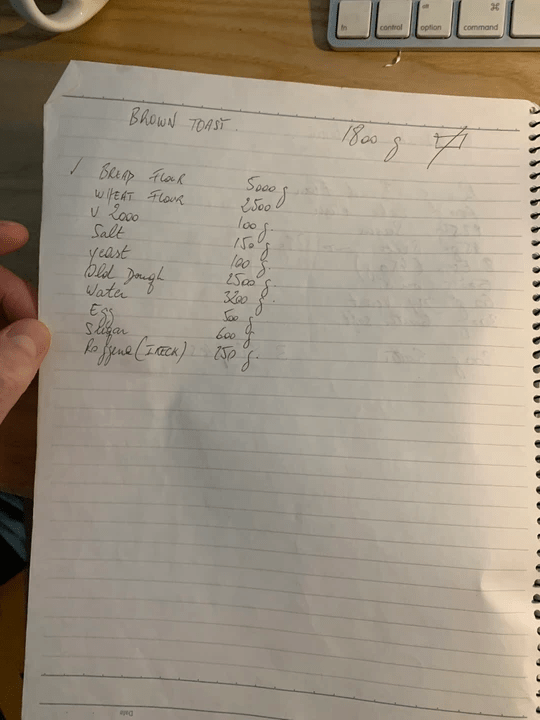 fn control option alt command ⌘
BROWN TOAST.
1800 g
✓ BREAD FLOUR 5000 g
WHEAT FLOUR 2500
V 2000 100 g.
Salt 150 g
yeast 100 g.
Old Dough 2500 g
Water 3200 g.
Egg 500 g
Sugar 600 g
(IRECK) 250 g.
Date